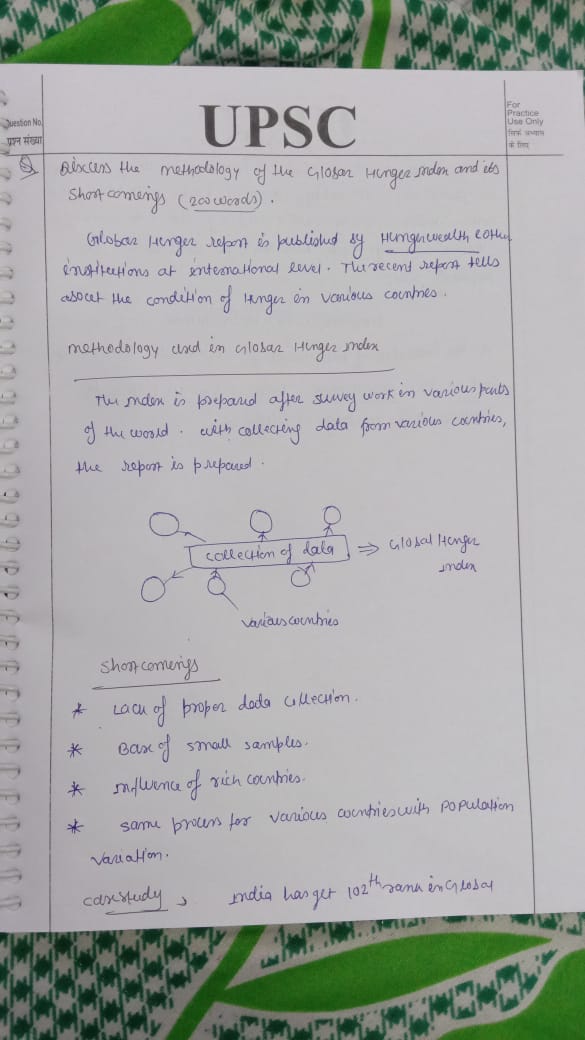 Question No.
प्रश्न संख्या
UPSC
For
Practice
Use Only
सिर्फ अभ्यास
के लिए
Q Discuss the methodology of the Global Hunger Index and its
shortcomings (200 words).
Global Hunger report is published by Hungerwealth
institutions at international level. The recent report tells
about the condition of Hunger in various countries.
methodology used in Global Hunger Index
The Index is prepared after survey work in various parts
of the world. with collecting data from various countries,
the report is prepared.
collection of data ⇒ Global Hunger
Index
various countries
Shortcomings
* Lack of proper data collection.
* Base of small samples.
* Influence of rich countries.
* same process for various countries with population
variation.
case study India has get 102th rank in Global